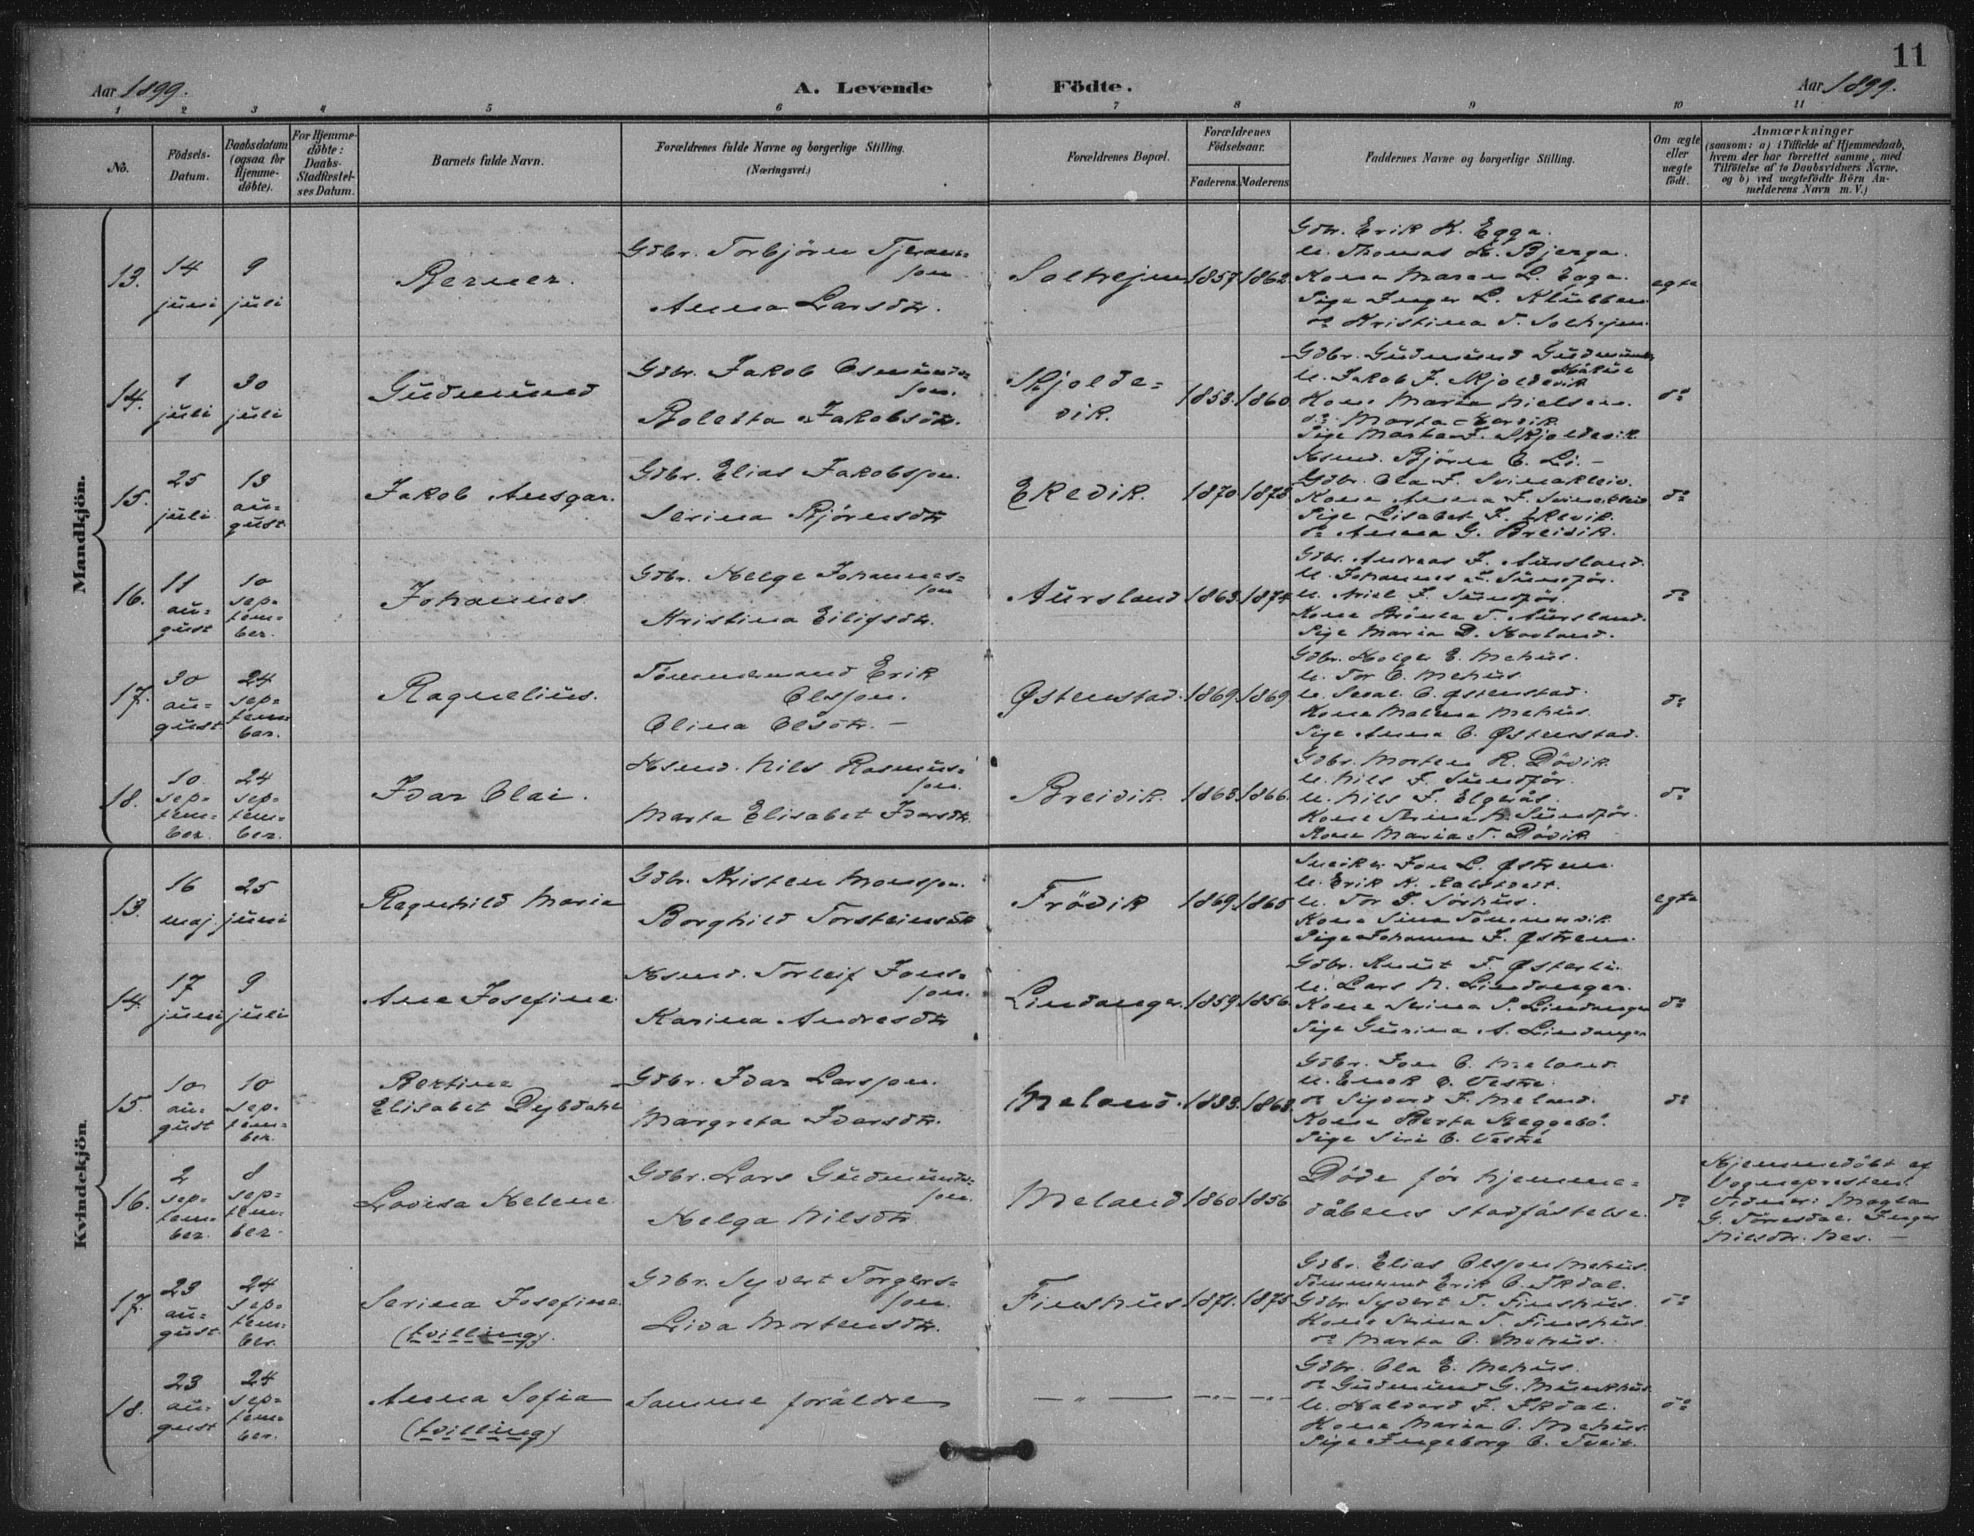 11
Aar 1899.
A. Levende Födte.
Aar 1899.
1 2 3 4 5 6 7 8 9 10 11
No.
Födsels-
Datum.
Daabsdatum
(ogsaa for
Hjemme-
döbte).
For Hjemme-
döbte:
Daabs-
Stadfæstel-
ses Datum.
Barnets fulde Navn.
Forældrenes fulde Navne og borgerlige Stilling.
(Næringsvei.)
Forældrenes Bopæl.
Forældrenes
Födselsaar.
Faderens. Moderens
Faddernes Navne og borgerlige Stilling.
Om ægte
eller
uægte
födt.
Anmærkninger
(saasom: a) i Tilfælde af Hjemmedaab,
hvem der har forrettet samme, med
Tilföielse af to Daabsvidners Navne,
og b) ved uægtefödte Börn An-
melderens Navn m. V.)
Mandkjön.
13.
14
juni
9
juli
Berner.
Gdbr. Torbjörn
son
Anna Larsdtr.
Solheim 1857. 1862.
Gdbr. Erik K. Egga.
U. Thomas H. Bjerga.
Kone Maren L. Egga.
Pige Inger L. Klubben
do Kristina T. Solhejm
egte
14.
1
juli
30
juli
Gudmund
Gdbr. Jakob Osmunds=
son.
Boletta Jakobsdtr.
Skjolde=
vik.
1853. 1860.
Gdbr. Gudmund Gudmunds
U. Jakob J. Skjoldevik
Kone Maria Nielsen.
do Marta
Pige Marta J. Skjoldevik
do
15.
25
juli
13
au=
gust
Jakob Ansgar.
Gdbr. Elias Jakobsson.
Serina Bjørnsdtr
Ekevik. 1870. 1873
Husmd. Bjørn E. Li. —
Gdbr. Ola J. Svinakleiv.
Kone Anna J. Svinakleiv
Pige Lisabet J. Ekevik.
do Anna G. Breivik.
do
16.
11
au=
gust
10
sep=
tem=
ber.
Johannes.
Gdbr. Helge Johannes=
son
Kristina Eilifsdtr.
Aursland 1863. 1874.
Gdbr. Andreas J. Aursland.
U. Johannes J. Sundfør.
U. J. Sundfør
Kone T. Aursland.
Pige Maria D. Havland.
do
17.
30
au=
gust
24
sep=
tem=
ber.
Ragnelius.
Tømmermand Erik
Olsson.
Olina Olsdtr. —
Østenstad. 1869. 1869
Gdbr. Holger E. Mehus.
U. Tor O. Mehus
U. O. Østenstad.
Kone Malena Mehus.
Pige Anna O. Østenstad.
do
18.
10
sep=
tem=
ber.
24
sep=
tem=
ber.
Ivar Olai.
Husmd. Nils Rasmus=
son.
Marta Elisabet Ivarsdtr
Breivik. 1863. 1866.
Gdbr. Morten R. Døvik
U. Nils J. Sundfør.
U. Nils J. Elgnäs.
Kone Serina N. Sundfør.
Kone Maria T. Døvik
do
Kvindekjön.
13.
16
maj
25
juni
Ragnhild Maria
Gdbr. Kristen Monsson.
Borghild Torsteinsdtr
Frövik 1869. 1865
Snekker Jon L. Østrem
U. Erik N.
U. Tor T. Sørhus.
Kone Sina Tømmervik
Pige Johanna J. Østrem.
egte
14.
17
juni
9
juli
Ane Josefine
Husmd. Torleif Jons=
son.
Karina Andresdtr
Lindanger. 1859. 1856.
Gdbr. Knut T. Østerli.
U. Lars N. Lindanger.
Kone Serina S. Lindanger
Pige Gurina A. Lindanger
do
15.
10
au=
gust
10
sep=
tem=
ber.
Bertine
Elisabet Dybdahl
Gdbr. Ivar Larsson.
Margreta Ivarsdtr.
Meland. 1833. 1863.
Gdbr. Jon O. Meland.
U. Enok O. Vestre.
do Sigvard J. Meland.
Kone Berta Skeggebø.
Pige Siri O. Vestre
do
16.
2
sep=
tem=
ber.
8
sep=
tem=
ber.
Lovisa Helene
Gdbr. Lars Gudmunds=
son.
Helga Nilsdtr
Meland 1860. 1856
Døde før hjemme=
dåbens stadfästelse.
do
Hjemmedöbt af
Vognepresten.
Vidner: Magla
G. Tørresdal. Inger
Nilsdtr. Nes. —
17.
23
au=
gust
24
sep=
tem=
ber.
Serina Josefine
(tvilling).
Gdbr. Syvert Torgers=
son.
Liva Mortensdtr.
Finshus 1871. 1875
Gdbr. Elias Olsson Mehus.
Tømmermd Erik O. Ikdal.
Gdbr Syvert T. Finshus.
Kone Serina T. Finshus.
do Marta O. Mehus.
do
18.
23
au=
gust
24
sep=
tem=
ber.
Anna Sofia
(tvilling)
Samme foräldre
— " —
Gdbr. Ola E. Mehus.
do Gudmund G. Munkhus
U. Halvard J. Ikdal.
Kone Maria O. Mehus
Pige Ingeborg O. Tveit.
do